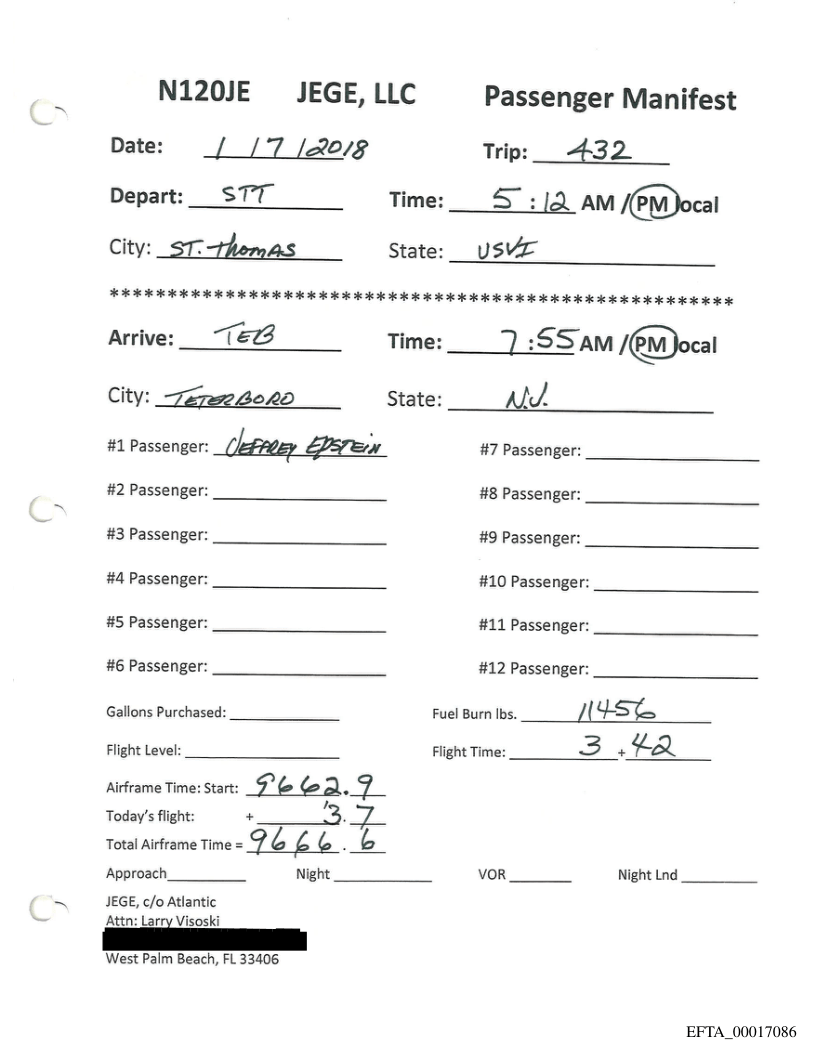 N120JE JEGE, LLC Passenger Manifest
Date: 1 / 7 / 2018 Trip: 432
Depart: STT Time: 5 : 12 AM / PM local
City: ST. THOMAS State: USVI
******************************************************
Arrive: TEB Time: 7 : 55 AM / PM local
City: TETERBORO State: N.J.
#1 Passenger: JEFFREY EPSTEIN #7 Passenger:
#2 Passenger: #8 Passenger:
#3 Passenger: #9 Passenger:
#4 Passenger: #10 Passenger:
#5 Passenger: #11 Passenger:
#6 Passenger: #12 Passenger:
Gallons Purchased: Fuel Burn lbs. 11456
Flight Level: Flight Time: 3 + 42
Airframe Time: Start: 9662.9
Today's flight: + 3.7
Total Airframe Time = 9666.6
Approach Night VOR Night Lnd
JEGE, c/o Atlantic
Attn: Larry Visoski
West Palm Beach, FL 33406
EFTA_00017086